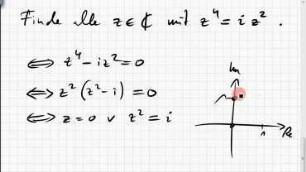 Finde alle z ∈ ℂ mit z⁴ = i z².
⟺ z⁴ - iz² = 0
⟺ z²(z² - i) = 0
⟺ z = 0 ∨ z² = i
Im
1
Re